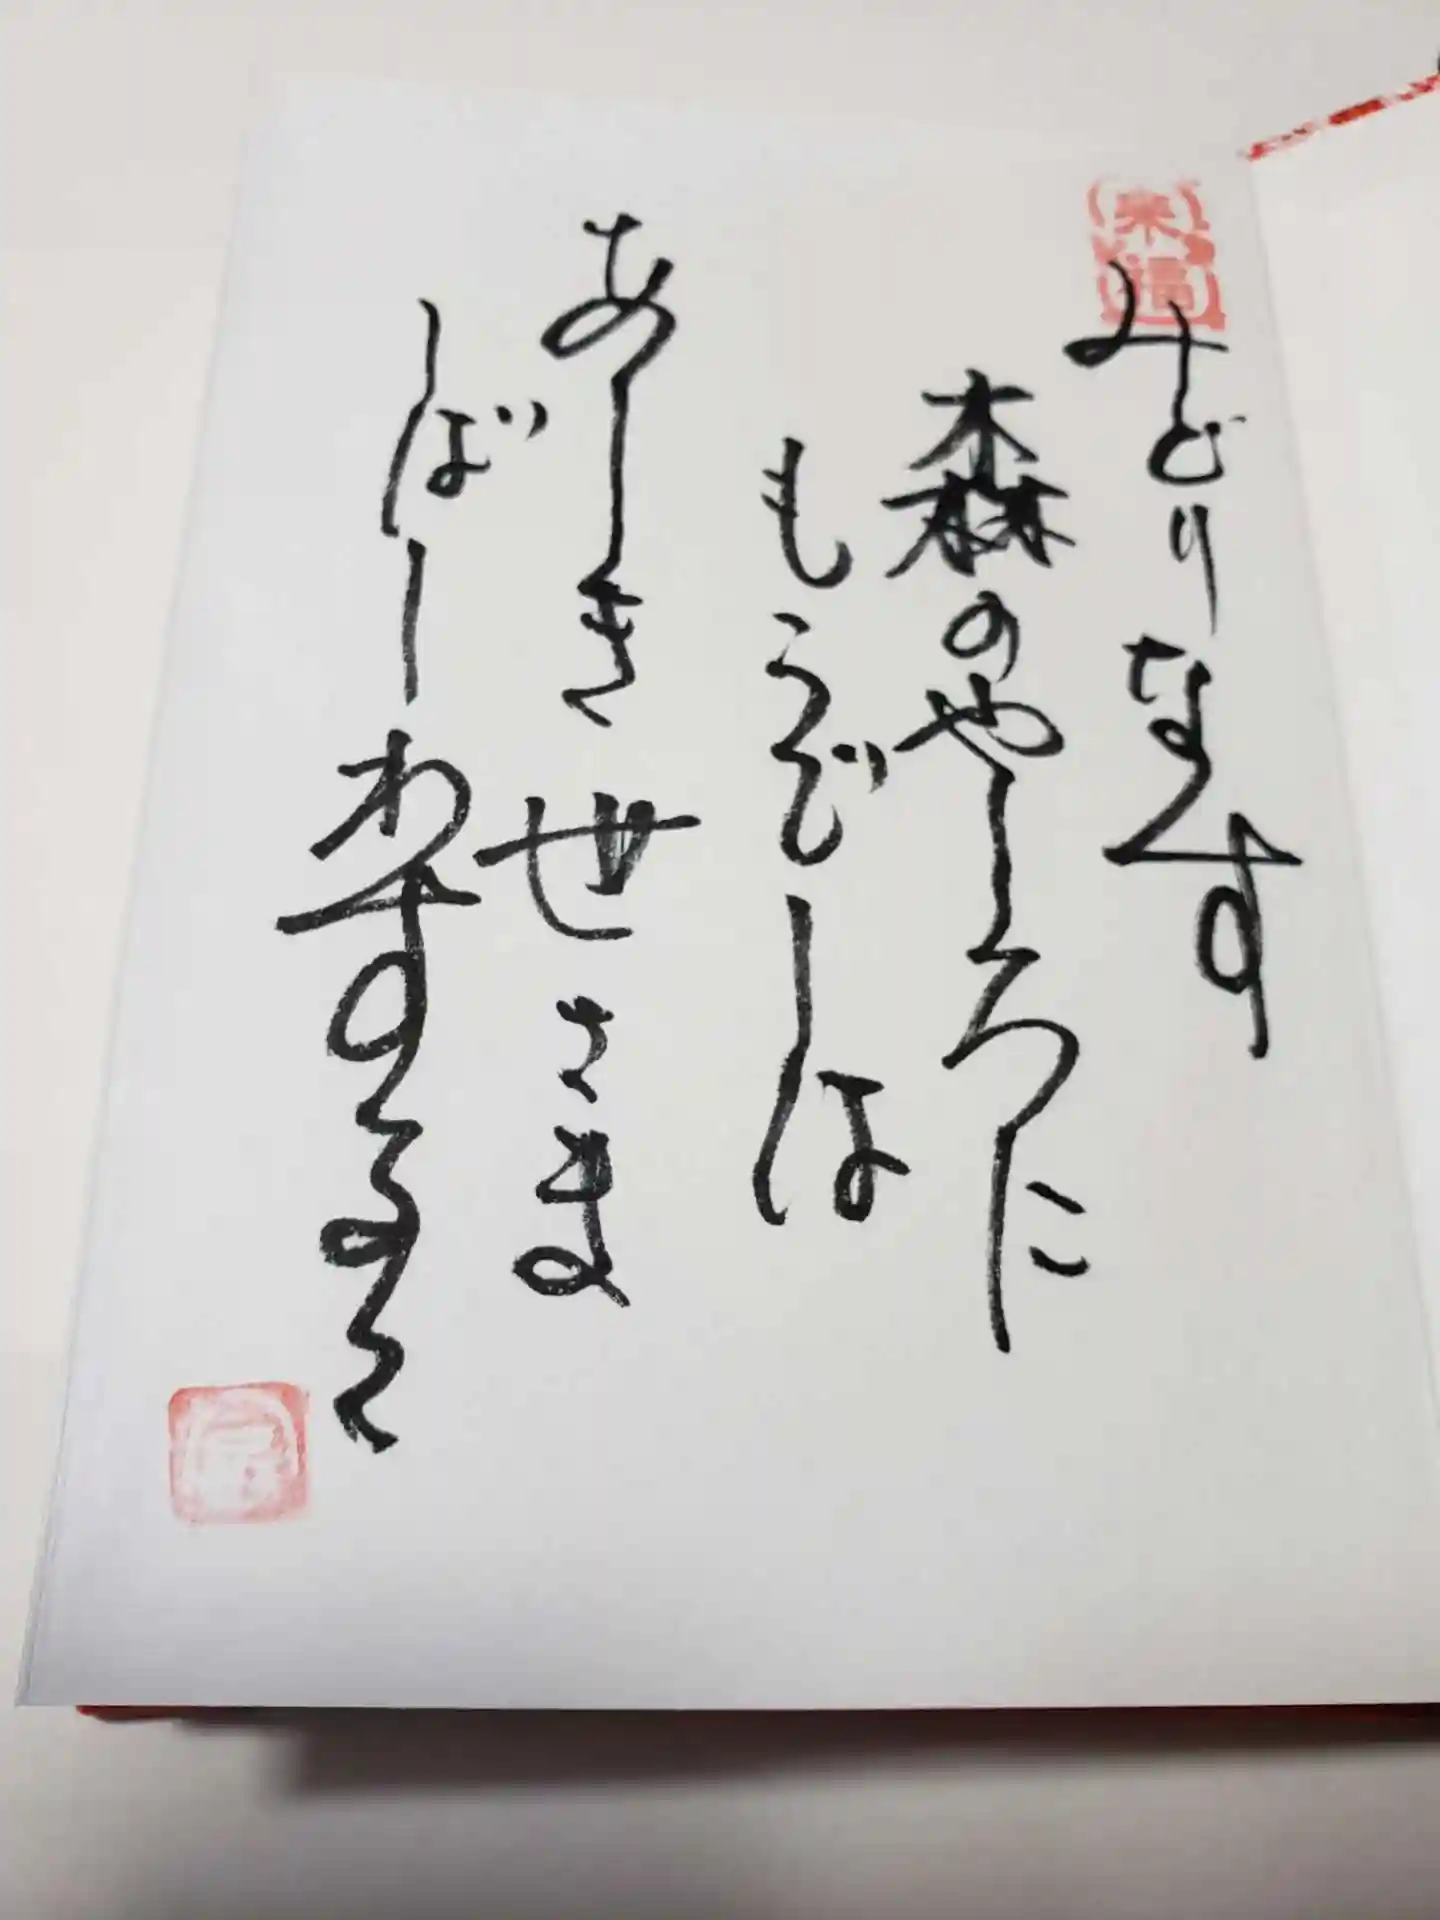 来福
みどりなす
森のやしろに
もうでしは
あしき世さま
しばしわするる